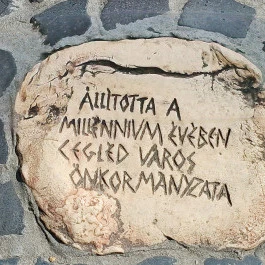 ÁLLÍTOTTA A
MILLENNIUM ÉVÉBEN
CEGLÉD VÁROS
ÖNKORMÁNYZATA